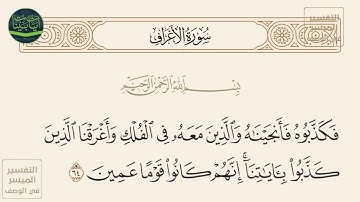 سُورَةُ الأَعْرَافِ
التفسير
الميسر
بِسْمِ اللَّهِ الرَّحْمَٰنِ الرَّحِيمِ
فَكَذَّبُوهُ فَأَنجَيْنَٰهُ وَٱلَّذِينَ مَعَهُۥ فِى ٱلْفُلْكِ وَأَغْرَقْنَا ٱلَّذِينَ
كَذَّبُوا۟ بِـَٔايَٰتِنَآ ۚ إِنَّهُمْ كَانُوا۟ قَوْمًا عَمِينَ ٦٤
التفسير
الميسر
في الوصف